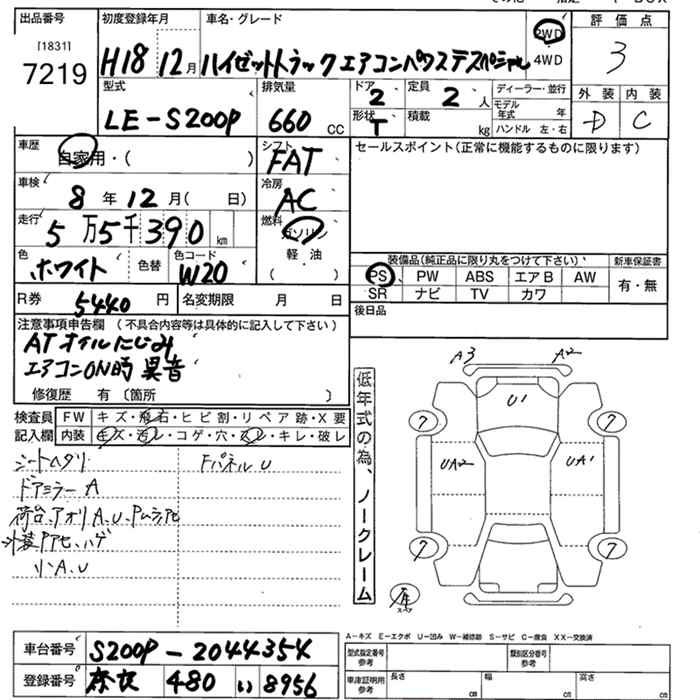 出品番号
[1831]
7219
初度登録年月
H18 12月
車名・グレード
ハイゼットトラック エアコンパワステスペシャル
2WD
4WD
評価点
3
型式
LE-S200P
排気量
660 CC
ドア
2
形状
T
定員
2 人
積載
kg
ディーラー・並行
モデル年式 年
ハンドル 左・右
外装 内装
D C
車歴
自家用・( )
シフト
FAT
セールスポイント(正常に機能するものに限ります)
車検
8年 12月( 日)
冷房
AC
走行
5万5千390 km
燃料
ガソリン
軽油
( )
色
ホワイト
色替
色コード
W20
装備品(純正品に限り丸をつけて下さい)
新車保証書
PS PW ABS エアB AW
SR ナビ TV カワ
有・無
R券
5440 円
名変期限 月 日
後日品
注意事項申告欄 (不具合内容等は具体的に記入して下さい)
ATオイルにじみ
エアコンON時 異音
修復歴 有 〔箇所 〕
検査員記入欄
FW キズ・飛石・ヒビ割・リペア跡・X要
内装 キズ・汚レ・コゲ・穴・スレ・キレ・破レ
シートヘタリ
Fパネル U
ドアミラー A
荷台、アオリ A、U、Pムラ、アセ
外装Pアセ、ハゲ
小A、U
低年式の為、ノークレーム
A3
A2
U1
UA2
UA1
7
7
7
7
スペア
A-キズ E-エクボ U-凹み W-補修跡 S-サビ C-腐食 XX-交換済
車台番号
S200P-2044354
登録番号
奈良 480 い 8956
型式指定番号
参考
類別区分番号
参考
車庫証明用
参考
長さ cm
幅 cm
高さ cm